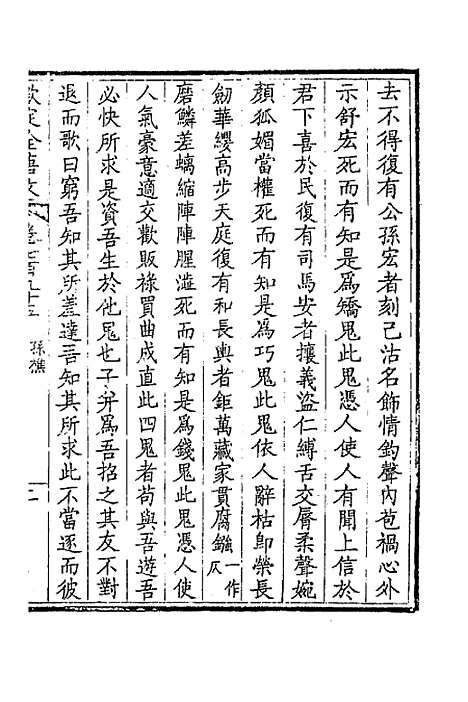 去不得復有公孫宏者刻己沽名飾情釣聲內苞禍心外
示舒宏死而有知是爲矯鬼此鬼憑人使人有聞上信於
君下喜於民復有司馬安者攘義盜仁縛舌交脣柔聲婉
顏狐媚當權死而有知是爲巧鬼此鬼依人辭枯卽榮長
劒華纓高步天庭復有和長輿者鉅萬藏家貫腐鏹一作仄
磨鱗差螭縮陣陣腥澁死而有知是爲錢鬼此鬼憑人使
人氣豪意適交歡販祿買曲成直此四鬼者苟與吾遊吾
必快所求是資吾生於他鬼也子并爲吾招之其友不對
退而歌曰窮吾知其所羞達吾知其所求此不當逐而彼
欽定全唐文 卷七百九十五 孫樵 二